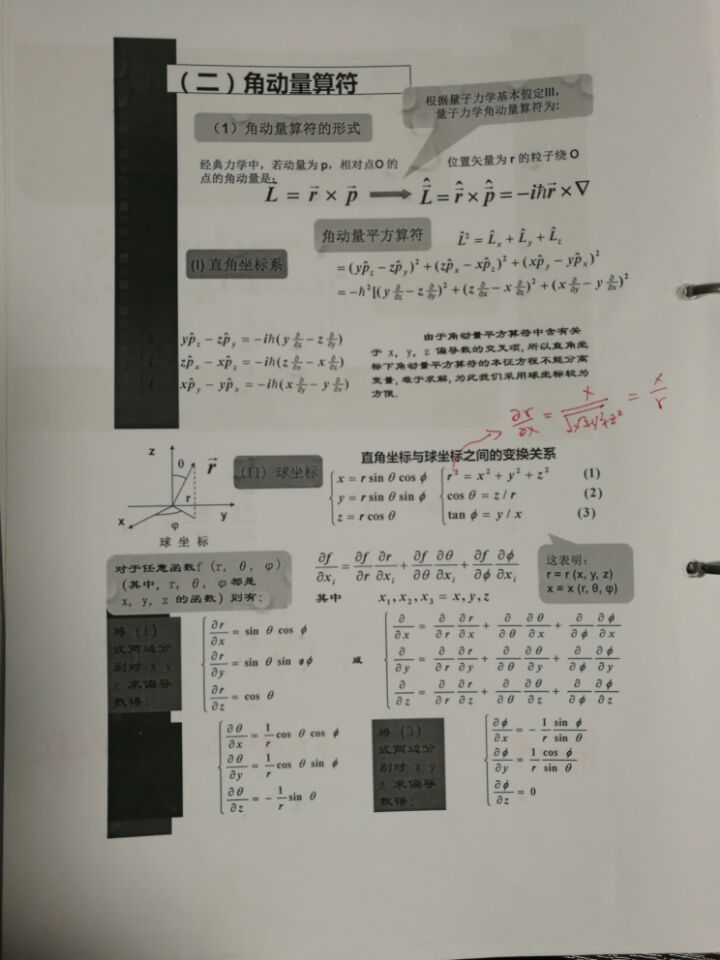 （二）角动量算符
根据量子力学基本假定III,
量子力学角动量算符为:
（1）角动量算符的形式
经典力学中，若动量为 p，相对点O 的
位置矢量为 r 的粒子绕 O
点的角动量是:
L = r⃗ × p⃗ → L̂⃗ = r̂⃗ × p̂⃗ = −iħr⃗ × ∇
角动量平方算符
L̂² = L̂ₓ + L̂ᵧ + L̂_z
(I) 直角坐标系
= (yp̂_z − zp̂_y)² + (zp̂_x − xp̂_z)² + (xp̂_y − yp̂_x)²
= −ħ²[(y ∂/∂z − z ∂/∂y)² + (z ∂/∂x − x ∂/∂z)² + (x ∂/∂y − y ∂/∂x)²
yp̂_z − zp̂_y = −iħ(y ∂/∂z − z ∂/∂y)
zp̂_x − xp̂_z = −iħ(z ∂/∂x − x ∂/∂z)
xp̂_y − yp̂_x = −iħ(x ∂/∂y − y ∂/∂x)
由于角动量平方算符中含有关
于 x, y, z 偏导数的交叉项, 所以直角坐
标下角动量平方算符的本征方程不能分离
变量, 难于求解, 为此我们采用球坐标较为
方便.
∂r/∂x = x/√x²+y²+z² = x/r
z
θ
r⃗
r
x
φ
y
球 坐 标
(II) 球坐标
直角坐标与球坐标之间的变换关系
x = r sin θ cos ϕ
y = r sin θ sin ϕ
z = r cos θ
r² = x² + y² + z² (1)
cos θ = z / r (2)
tan ϕ = y / x (3)
对于任意函数f (r, θ, φ)
(其中, r, θ, φ 都是
x, y, z 的函数) 则有:
∂f/∂xᵢ = ∂f/∂r ∂r/∂xᵢ + ∂f/∂θ ∂θ/∂xᵢ + ∂f/∂ϕ ∂ϕ/∂xᵢ
其中 x₁, x₂, x₃ = x, y, z
这表明:
r = r (x, y, z)
x = x (r, θ, φ)
将 (1)
式两边分
别对 x y
z 求偏导
数得:
∂r/∂x = sin θ cos ϕ
∂r/∂y = sin θ sin ϕ
∂r/∂z = cos θ
或
∂/∂x = ∂/∂r ∂r/∂x + ∂/∂θ ∂θ/∂x + ∂/∂ϕ ∂ϕ/∂x
∂/∂y = ∂/∂r ∂r/∂y + ∂/∂θ ∂θ/∂y + ∂/∂ϕ ∂ϕ/∂y
∂/∂z = ∂/∂r ∂r/∂z + ∂/∂θ ∂θ/∂z + ∂/∂ϕ ∂ϕ/∂z
∂θ/∂x = 1/r cos θ cos ϕ
∂θ/∂y = 1/r cos θ sin ϕ
∂θ/∂z = − 1/r sin θ
将 (3)
式两边分
别对 x y
z 求偏导
数得:
∂ϕ/∂x = − 1/r sin ϕ/sin θ
∂ϕ/∂y = 1/r cos ϕ/sin θ
∂ϕ/∂z = 0